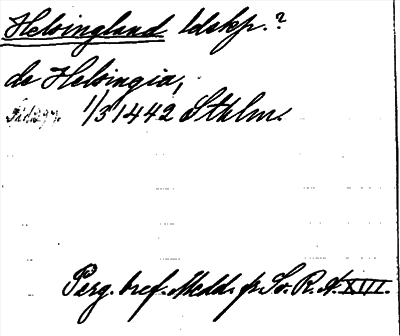 Helsingland ldskp.?
de Helsingia,
1/3 1442 Sthlm.
Perg. bref. Medd. fr. Sv. R. A. XIII.